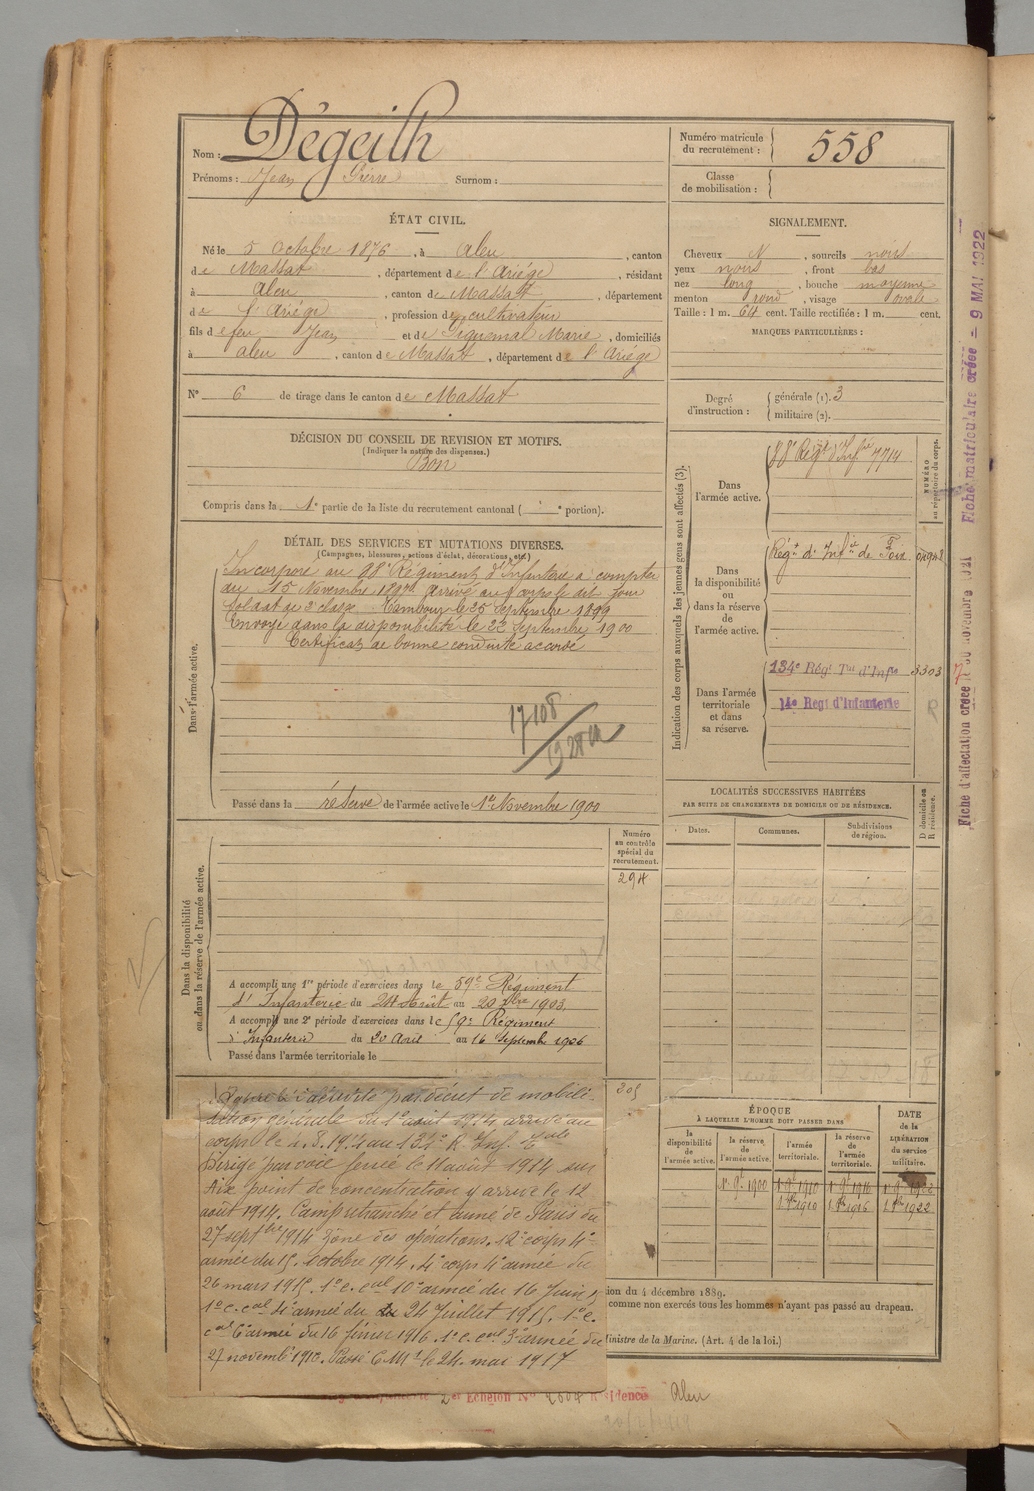 Nom : Dégeilh
Prénoms : Jean Pierre Surnom :
Numéro matricule du recrutement : 558
Classe de mobilisation :
ÉTAT CIVIL.
Né le 5 Octobre 1876, à Aleu, canton
de Massat, département de l'Ariége, résidant
à Aleu, canton de Massat, département
de l'Ariége, profession de cultivateur
fils de feu Jean et de Piquemal Marie, domiciliés
à Aleu, canton de Massat, département de l'Ariége
N° 6 de tirage dans le canton de Massat
SIGNALEMENT.
Cheveux N, sourcils noirs
yeux noirs, front bas
nez long, bouche moyenne
menton rond, visage ovale
Taille : 1 m. 64 cent. Taille rectifiée : 1 m. cent.
MARQUES PARTICULIÈRES :
Degré d'instruction : générale (1). 3
militaire (2).
DÉCISION DU CONSEIL DE REVISION ET MOTIFS.
(Indiquer la nature des dispenses.)
Bon
Compris dans la 1e partie de la liste du recrutement cantonal ( e portion).
DÉTAIL DES SERVICES ET MUTATIONS DIVERSES.
(Campagnes, blessures, actions d'éclat, décorations, etc.)
Dans l'armée active.
Incorporé au 88e Régiment d'Infanterie à compter
du 15 Novembre 1897 arrivé au corps le dit jour
soldat de 2e classe Tambour le 25 Septembre 1899
Envoyé dans la disponibilité le 22 Septembre 1900
Certificat de bonne conduite accordé
17108
1928
Passé dans la réserve de l'armée active le 1er Novembre 1900
Indication des corps auxquels les jeunes gens sont affectés (3).
NUMÉRO au répertoire du corps.
Dans l'armée active.
88e Régt d'Infrie 7714
Dans la disponibilité ou dans la réserve de l'armée active.
Régt d'Infie de Foix 04942
Dans l'armée territoriale et dans sa réserve.
134e Régt Tal d'Infie 3303
14e Regt d'Infanterie
R
LOCALITÉS SUCCESSIVES HABITÉES
PAR SUITE DE CHANGEMENTS DE DOMICILE OU DE RÉSIDENCE.
Dates. Communes. Subdivisions de région. D domicile ou R résidence.
Dans la disponibilité ou dans la réserve de l'armée active.
Numéro au contrôle spécial du recrutement.
294
A accompli une 1re période d'exercices dans le 59e Régiment
d'Infanterie du 24 Août au 20 7bre 1903.
A accompli une 2e période d'exercices dans le 59e Régiment
d'Infanterie du 20 Août au 16 Septembre 1906
Passé dans l'armée territoriale le
205
par décret de mobili-
sation générale du 1er août 1914 arrivé au
corps le 2.8.1914 au 134e R. Inf. Tale
Dirigé par voie ferrée le 11 août 1914 sur
Aix point de concentration y arrive le 12
août 1914. Camp retranché et armé de Paris du
27 septbre 1914 Zône des opérations. 12e corps 4e
armée du 15 octobre 1914. 4e corps 4e armée du
26 mars 1915. 1er c. cal 10e armée du 16 Juin
1er c. cal 4e armée du 24 Juillet 1915. 1er c.
cal 6e armée du 16 février 1916. 1er c. cal 3e armée du
27 novemb 1916. Passé le 24 mai 1917
ÉPOQUE
À LAQUELLE L'HOMME DOIT PASSER DANS
la disponibilité de l'armée active. la réserve de l'armée active. l'armée territoriale. la réserve de l'armée territoriale.
DATE de la LIBÉRATION du service militaire.
1er 9e 1900 1er 9e 1910 1er 9e 1916 1er 9e 1922
1. 8bre 1910 1. 8bre 1916 1. 8bre 1922
ion du 4 décembre 1889.
comme non exercés tous les hommes n'ayant pas passé au drapeau.
Ministre de la Marine. (Art. 4 de la loi.)
2er Echelon N° Résidence Aleu
Fiche d'affectation créée le 30 novembre 1921
Fiche matriculaire créée - 9 MAI 1922